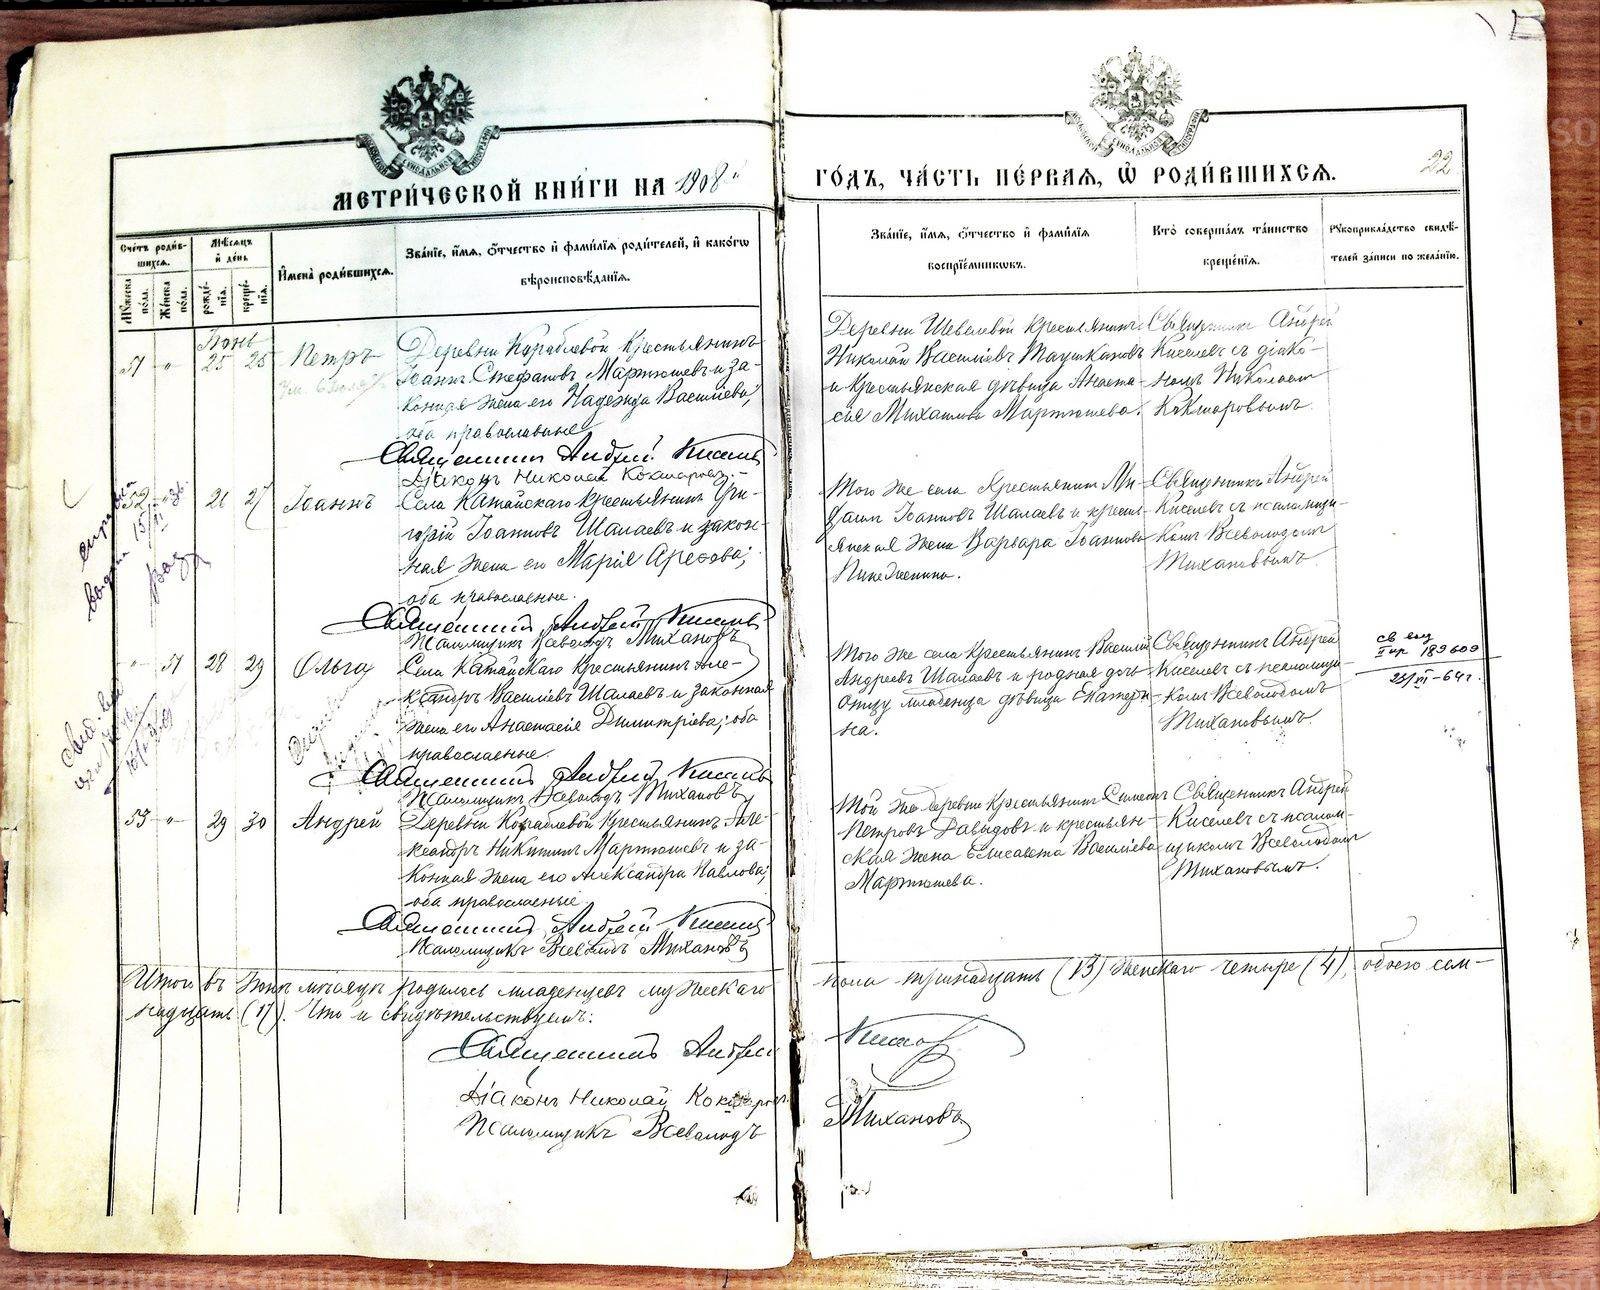 МЕТРИ́ЧЕСКОЙ КНИ́ГИ НА 1908
ГО́ДЪ, ЧА́СТЬ ПЕ́РВАЯ, Ѡ РОДИ́ВШИХСЯ.
22
Сче́тъ роди́в-
шихся.
Мꙋ́жеска по́ла.
Же́нска по́ла.
Мѣ́сяцъ
и́ де́нь
рожде́-
нія.
креще́-
нія.
И́мена̀ роди́вшихся.
Зва́ніе, и́мя, ѻ́тчество и́ фами́лія роди́телей, и́ како́гѡ
вѣроисповѣ́данія.
Зва́ніе, и́мя, ѻ́тчество и́ фами́лія
воспріе́мникѡвъ.
Кто̀ соверша́лъ та́инство
креще́нія.
Рꙋкоприкла́дство свидѣ́-
телей за́писи по жела́нію.
Іюнь
51 " 25 25 Петръ
Деревни Кораблевой крестьянинъ
Іоаннъ Стефановъ Мартюшевъ и за-
конная жена его Надежда Васильева,
оба православные
Священникъ Андрей Киселевъ
Діаконъ Николай Кокшаровъ
Деревни Шевелевой крестьянинъ
Николай Васильевъ Таушкановъ
и крестьянская дѣвица Анаста-
сія Михаилова Мартюшева.
Священникъ Андрей
Киселевъ съ діако-
номъ Николаемъ
Кокшаровымъ.
52 " 26 27 Іоаннъ
Села Катайскаго крестьянинъ Гри-
горій Іоанновъ Шалаевъ и закон-
ная жена его Марія Арефова;
оба православные.
Священникъ Андрей Киселевъ
Псаломщикъ Всеволодъ Тихановъ
Того же села крестьянинъ
Іоанновъ Шалаевъ и кресть-
янская жена Варвара Іоаннова
Священникъ Андрей
Киселевъ съ псаломщи-
комъ Всеволодомъ
Тихановымъ.
справка
выдан
" 51 28 29 Ольга
Села Катайскаго крестьянинъ Але-
ксандръ Васильевъ Шалаевъ и законная
жена его Анастасія Димитріева; оба
православные.
Священникъ Андрей Киселевъ
Псаломщикъ Всеволодъ Тихановъ
Того же села крестьянинъ Василій
Андреевъ Шалаевъ и родная дочь
отцу младенца дѣвица Екатери-
на.
Священникъ Андрей
Киселевъ съ псаломщи-
комъ Всеволодомъ
Тихановымъ.
189609
25/VII-64г.
53 " 29 30 Андрей
Деревни Кораблевой крестьянинъ Але-
ксандръ Никитинъ Мартюшевъ и за-
конная жена его Александра Павлова;
оба православные
Священникъ Андрей Киселевъ
Псаломщикъ Всеволодъ Тихановъ
Той же деревни крестьянинъ Симеонъ
Петровъ Давыдовъ и крестьян-
ская жена Елисавета Васильева
Мартюшева.
Священникъ Андрей
Киселевъ съ псалом-
щикомъ Всеволодомъ
Тихановымъ.
Итого въ Іюнѣ мѣсяцѣ родилось младенцевъ мужескаго пола тринадцать (13) женскаго четыре (4), обоего сем-
надцать (17). Что и свидѣтельствуемъ:
Священникъ Андрей Киселевъ
Діаконъ Николай Кокшаровъ
Псаломщикъ Всеволодъ Тихановъ